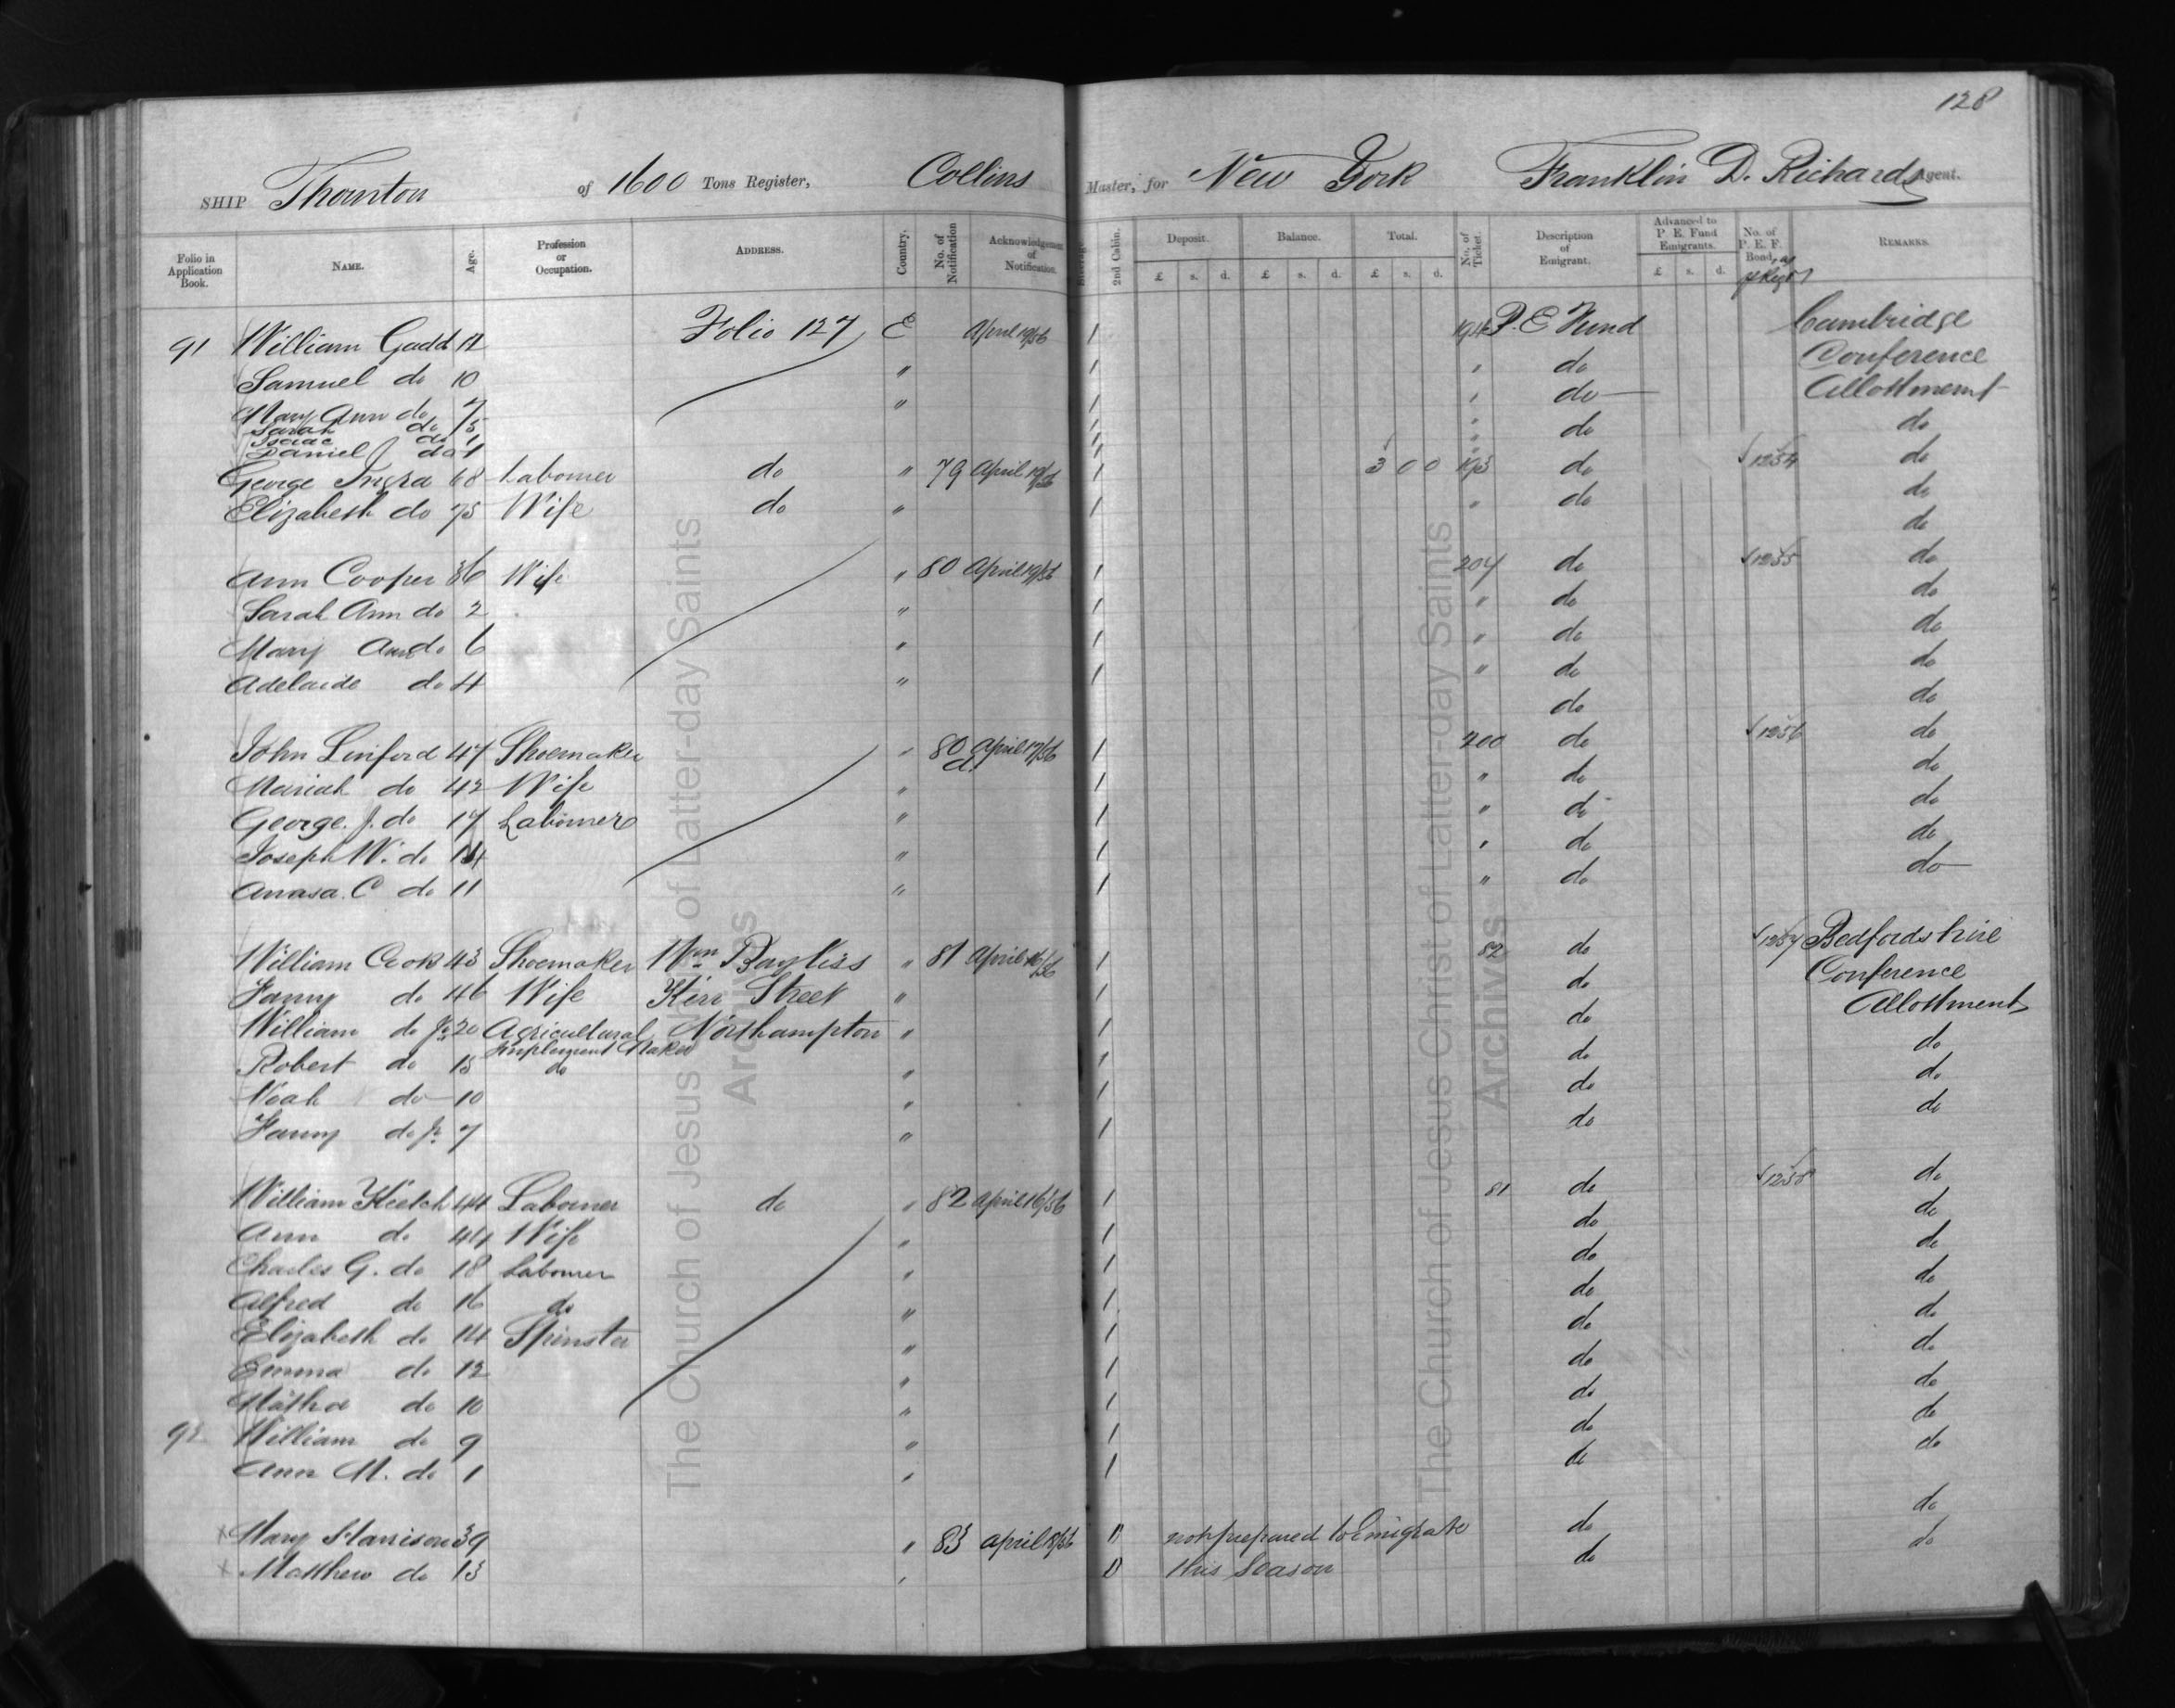 128
SHIP Thornton of 1600 Tons Register, Collins Master, for New York Franklin D. Richards Agent.
Folio in Application Book. NAME. Age. Profession or Occupation. ADDRESS. Country. No. of Notification Acknowledgement of Notification. 2nd Cabin. Deposit. £ s. d. Balance. £ s. d. Total. £ s. d. No. of Ticket. Description of Emigrant. Advanced to P. E. Fund Emigrants. £ s. d. No. of P. E. F. Bond, REMARKS.
91 William Gadd 12 Folio 127 E April 19/56 1 P. E Fund Cambridge
Samuel do 10 " 1 " do Conference
Mary Ann do 7 " 1 " do Allottment
Sarah do 5 1 " do do
Isaac do 1
Daniel J do 1
George Ingra 68 Labourer do " 79 April 19/56 1 3 0 0 193 do 1254 do
Elizabeth do 75 Wife do " 1 " do do
do
Ann Cooper 36 Wife " 80 April 19/56 1 204 do 1255 do
Sarah Ann do 2 " 1 " do do
Mary Ann do 6 " 1 " do do
Adelaide do 4 " 1 " do do
do do
John Linford 47 Shoemaker " 80 a April 19/56 1 200 do 1256 do
Mariah do 42 Wife " 1 " do do
George. J. do 17 Labourer " 1 " do do
Joseph W. do 14 " 1 " do do
Amasa. C do 11 " 1 " do do
William Cook 43 Shoemaker Wm Bayliss " 81 April 16/56 1 82 do 1257 Bedfordshire
Fanny do 46 Wife Kerr Street " 1 do Conference
William do Jr 20 Agricultural Northampton " 1 do Allottment
Implement Maker
Robert do 15 do " 1 do do
Noah do 10 " 1 do do
Fanny do Jr 7 " 1 do do
William Keetch 44 Labourer do " 82 April 16/56 1 81 do 1258 do
Ann do 44 Wife " 1 do do
Charles G. do 18 Labourer " 1 do do
Alfred do 16 do " 1 do do
Elizabeth do 14 Spinster " 1 do do
Emma do 12 " 1 do do
Martha do 10 " 1 do do
92 William do 9 " 1 do do
Ann M. do 1 " 1 do do
x Mary Harrison 39 " 83 April 18/56 not prepared to Emigrate do do
x Matthew do 13 " this Season do do
The Church of Jesus Christ of Latter-day Saints
Archives
The Church of Jesus Christ of Latter-day Saints
Archives